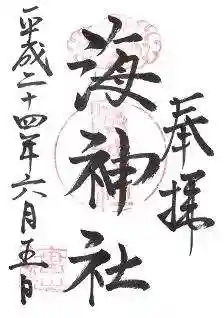 奉拝
海神社
平成二十四年六月五日